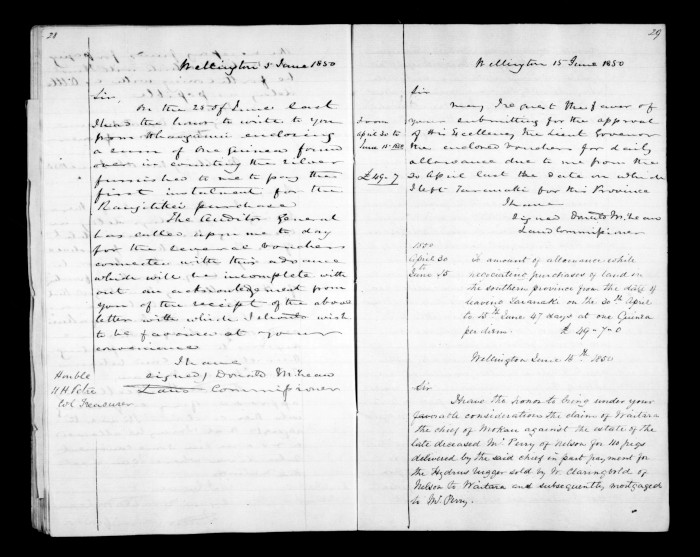 28
Wellington 5 June 1850
Sir,
On the 25 of June last
I had the honor to write to you
from Whanganui enclosing
a sum of One Guinea found
over in counting the silver
furnished to me to pay the
first instalment for the
Rangitikei purchase
The Auditor General
has called upon me to day
for the several vouchers
connected with this advance
which will be incomplete with
out an acknowledgement from
you of the receipt of the above
letter with which I should wish
to be favored at your
convenience
I have
signed, Donald McLean
Land Commissioner
Honble
H H Petre
Col Treasurer
29
Wellington 15 June 1850
Sir
May I request the favor of
your submitting for the approval
of His Excellency the Lieut Governor
the enclosed vouchers for daily
allowance due to me from the
30 April last the date on which
I left Taranaki for this Province
I have
signed Donald McLean
Land Commissioner
From
April 30 to
June 15 1850
£49-7
1850
April 30
to
June 15
To amount of allowance while
negociating purchases of land in
the southern province from the date of
leaving Taranaki on the 30th April
to 15th June 47 days at one Guinea
per diem £49-7-0
Wellington June 4th 1850
Sir
I have the honor to bring under your
favorable consideration the claim of Waitara
the chief of Mokau against the estate of the
late deceased Mr Perry of Nelson for 110 pigs
delivered by the said chief in part payment for
the Hydrus lugger sold by W. Claringbold of
Nelson to Waitara and subsequently mortgaged
to Mr Perry.